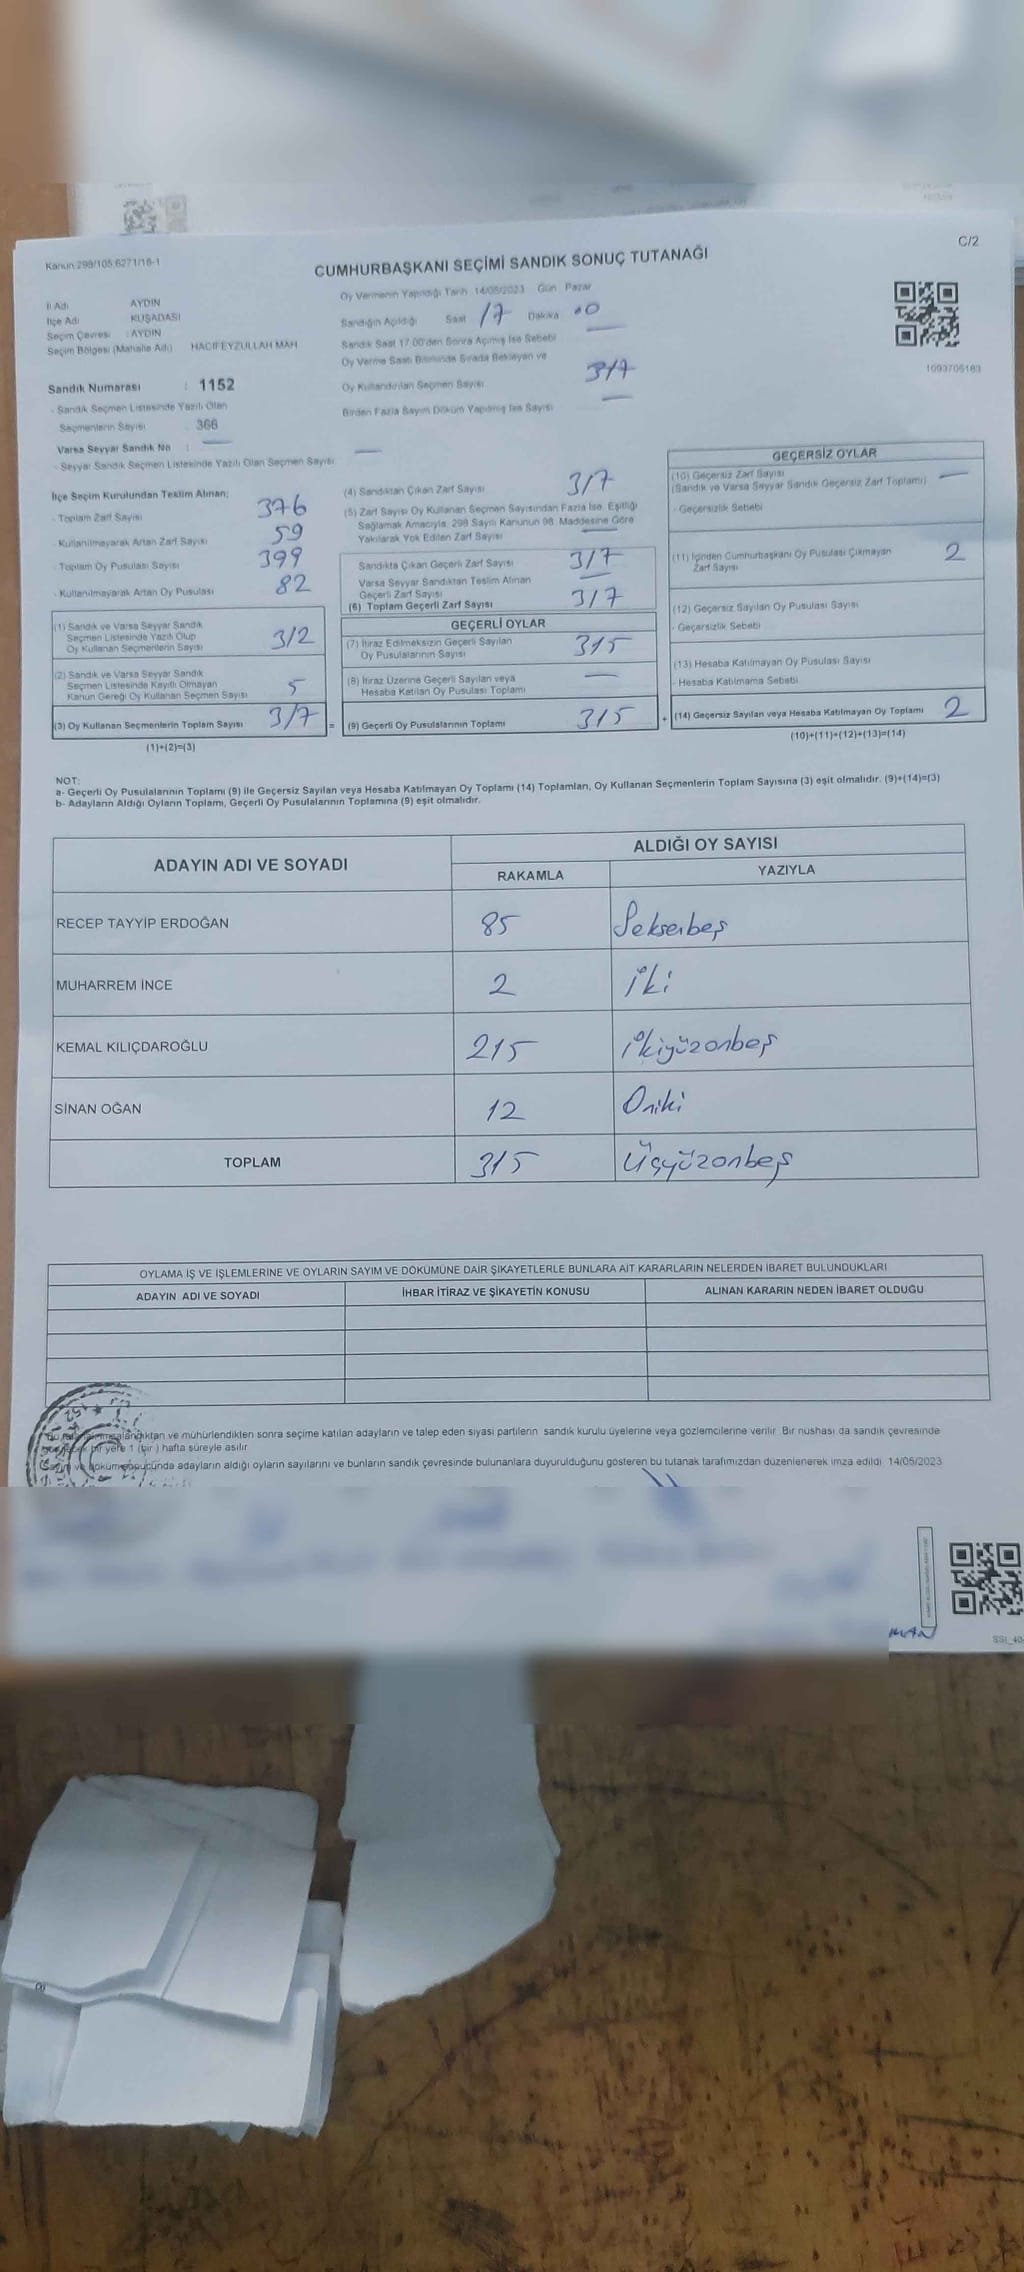 C/2
Kanun 298/105,6271/18-1
CUMHURBAŞKANI SEÇİMİ SANDIK SONUÇ TUTANAĞI
İl Adı AYDIN
İlçe Adı KUŞADASI
Seçim Çevresi : AYDIN
Seçim Bölgesi (Mahalle Adı) HACIFEYZULLAH MAH
Sandık Numarası : 1152
- Sandık Seçmen Listesinde Yazılı Olan
Seçmenlerin Sayısı 366
Varsa Seyyar Sandık No : —
- Seyyar Sandık Seçmen Listesinde Yazılı Olan Seçmen Sayısı —
Oy Vermenin Yapıldığı Tarih 14/05/2023 Gün Pazar
Sandığın Açıldığı Saat 17 Dakika 00
Sandık Saat 17.00'den Sonra Açmış İse Sebebi —
Oy Verme Saati Bitiminde Sırada Bekleyen ve
Oy Kullandırılan Seçmen Sayısı 317
Birden Fazla Sayım Döküm Yapılmış İse Sayısı —
1093705183
İlçe Seçim Kurulundan Teslim Alınan;
- Toplam Zarf Sayısı 376
- Kullanılmayarak Artan Zarf Sayısı 59
- Toplam Oy Pusulası Sayısı 399
- Kullanılmayarak Artan Oy Pusulası 82
(1) Sandık ve Varsa Seyyar Sandık
Seçmen Listesinde Yazılı Olup
Oy Kullanan Seçmenlerin Sayısı 312
(2) Sandık ve Varsa Seyyar Sandık
Seçmen Listesinde Kayıtlı Olmayan
Kanun Gereği Oy Kullanan Seçmen Sayısı 5
(3) Oy Kullanan Seçmenlerin Toplam Sayısı 317 =
(1)+(2)=(3)
(4) Sandıktan Çıkan Zarf Sayısı 317
(5) Zarf Sayısı Oy Kullanan Seçmen Sayısından Fazla İse, Eşitliği
Sağlamak Amacıyla, 298 Sayılı Kanunun 98. Maddesine Göre
Yakılarak Yok Edilen Zarf Sayısı —
Sandıkta Çıkan Geçerli Zarf Sayısı 317
Varsa Seyyar Sandıktan Teslim Alınan
Geçerli Zarf Sayısı —
(6) Toplam Geçerli Zarf Sayısı 317
GEÇERLİ OYLAR
(7) İtiraz Edilmeksizin Geçerli Sayılan
Oy Pusulalarının Sayısı 315
(8) İtiraz Üzerine Geçerli Sayılan veya
Hesaba Katılan Oy Pusulası Toplamı —
(9) Geçerli Oy Pusulalarının Toplamı 315 +
GEÇERSİZ OYLAR
(10) Geçersiz Zarf Sayısı —
(Sandık ve Varsa Seyyar Sandık Geçersiz Zarf Toplamı)
- Geçersizlik Sebebi
(11) İçinden Cumhurbaşkanı Oy Pusulası Çıkmayan
Zarf Sayısı 2
(12) Geçersiz Sayılan Oy Pusulası Sayısı
- Geçersizlik Sebebi
(13) Hesaba Katılmayan Oy Pusulası Sayısı
- Hesaba Katılmama Sebebi
(14) Geçersiz Sayılan veya Hesaba Katılmayan Oy Toplamı 2
(10)+(11)+(12)+(13)=(14)
NOT:
a- Geçerli Oy Pusulalarının Toplamı (9) ile Geçersiz Sayılan veya Hesaba Katılmayan Oy Toplamı (14) Toplamları, Oy Kullanan Seçmenlerin Toplam Sayısına (3) eşit olmalıdır. (9)+(14)=(3)
b- Adayların Aldığı Oyların Toplamı, Geçerli Oy Pusulalarının Toplamına (9) eşit olmalıdır.
ADAYIN ADI VE SOYADI ALDIĞI OY SAYISI
RAKAMLA YAZIYLA
RECEP TAYYİP ERDOĞAN 85 Seksenbeş
MUHARREM İNCE 2 iki
KEMAL KILIÇDAROĞLU 215 ikiyüzonbeş
SİNAN OĞAN 12 Oniki
TOPLAM 315 Üçyüzonbeş
OYLAMA İŞ VE İŞLEMLERİNE VE OYLARIN SAYIM VE DÖKÜMÜNE DAİR ŞİKAYETLERLE BUNLARA AİT KARARLARIN NELERDEN İBARET BULUNDUKLARI
ADAYIN ADI VE SOYADI İHBAR İTİRAZ VE ŞİKAYETİN KONUSU ALINAN KARARIN NEDEN İBARET OLDUĞU
ve mühürlendikten sonra seçime katılan adayların ve talep eden siyasi partilerin sandık kurulu üyelerine veya gözlemcilerine verilir. Bir nüshası da sandık çevresinde
bir yere 1 (bir ) hafta süreyle asılır.
adayların aldığı oyların sayılarını ve bunların sandık çevresinde bulunanlara duyurulduğunu gösteren bu tutanak tarafımızdan düzenlenerek imza edildi. 14/05/2023
SSI_40